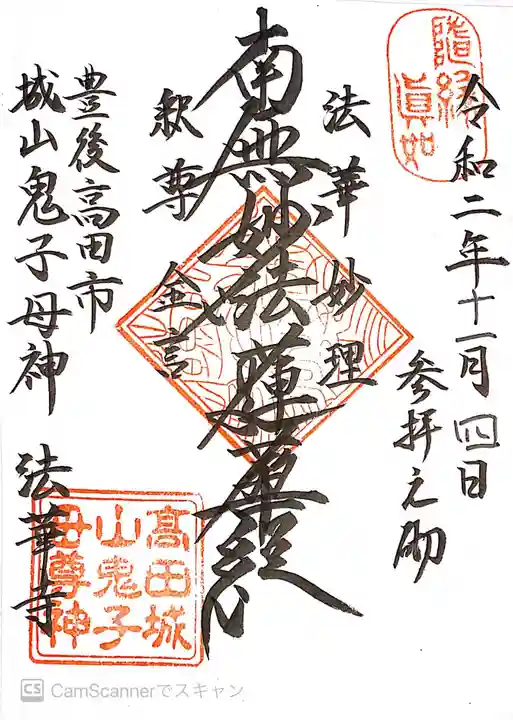 令和二年十一月四日
参拝之砌
法華妙理
南無妙法蓮華経
釈尊金言
豊後高田市
城山鬼子母神 法華寺
随縁
真如
高田城
山鬼子
母尊神
CS CamScannerでスキャン